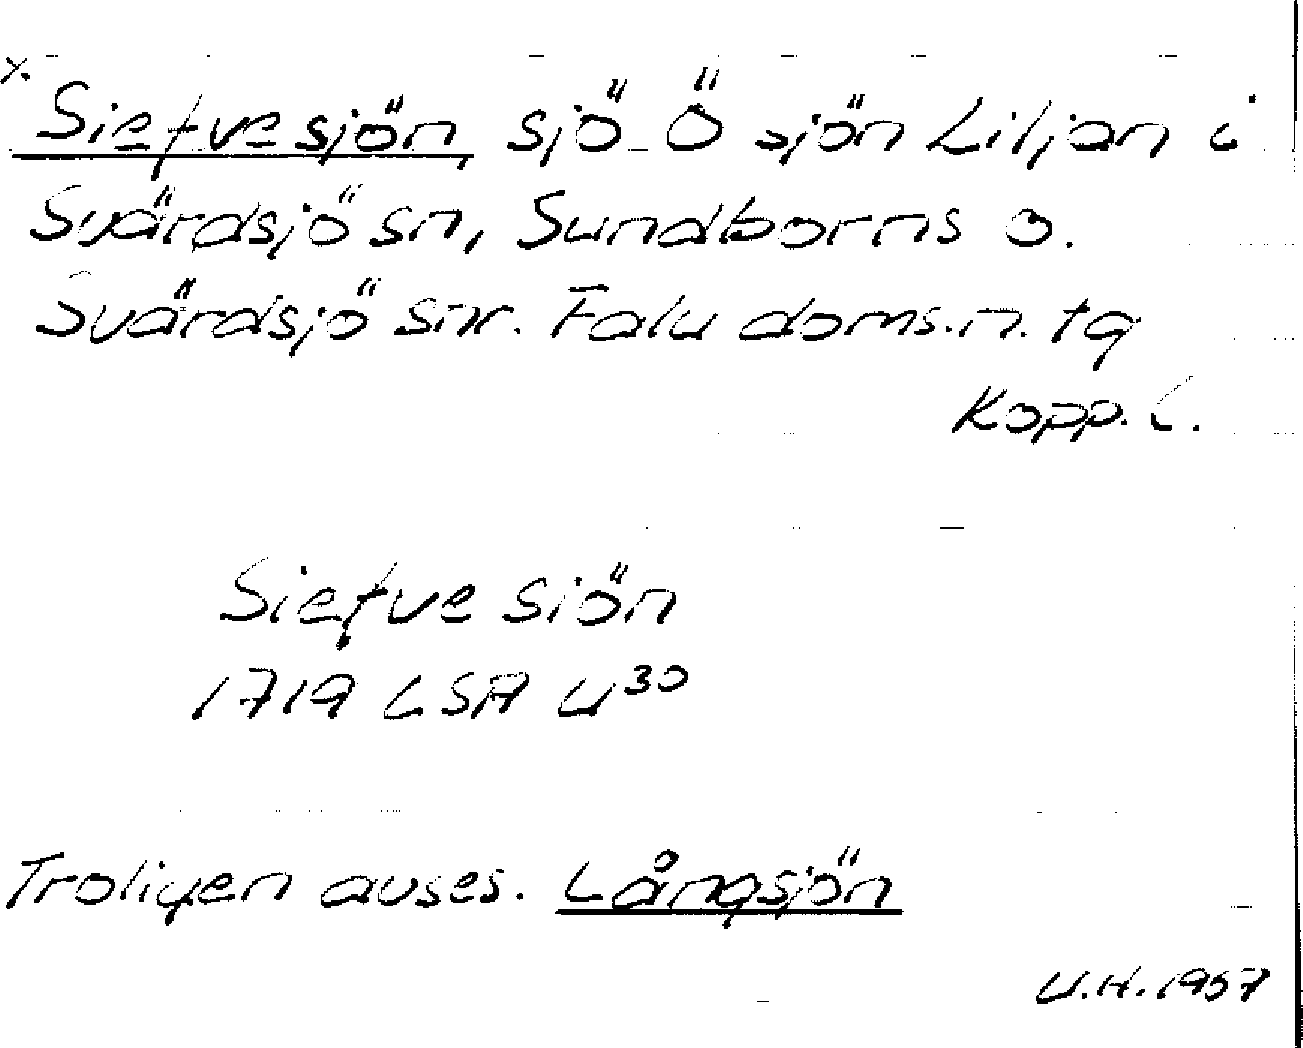 x. Siefvesjön, sjö Ö sjön Liljan i
Svärdsjö sn, Sundborns o.
Svärdsjö snr. Falu doms.n. tg
Kopp. L.
Siefve siön
1719 LSA U³⁰
Troligen avses. Långsjön
U.H. 1957